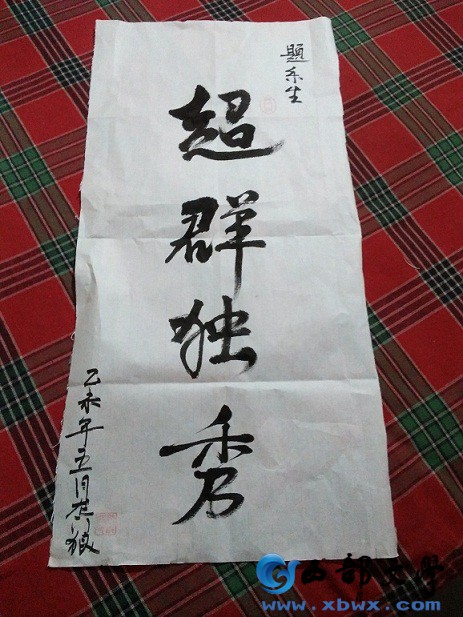 题东生
超群独秀
乙未年五月
西部文学
www.xbwx.com